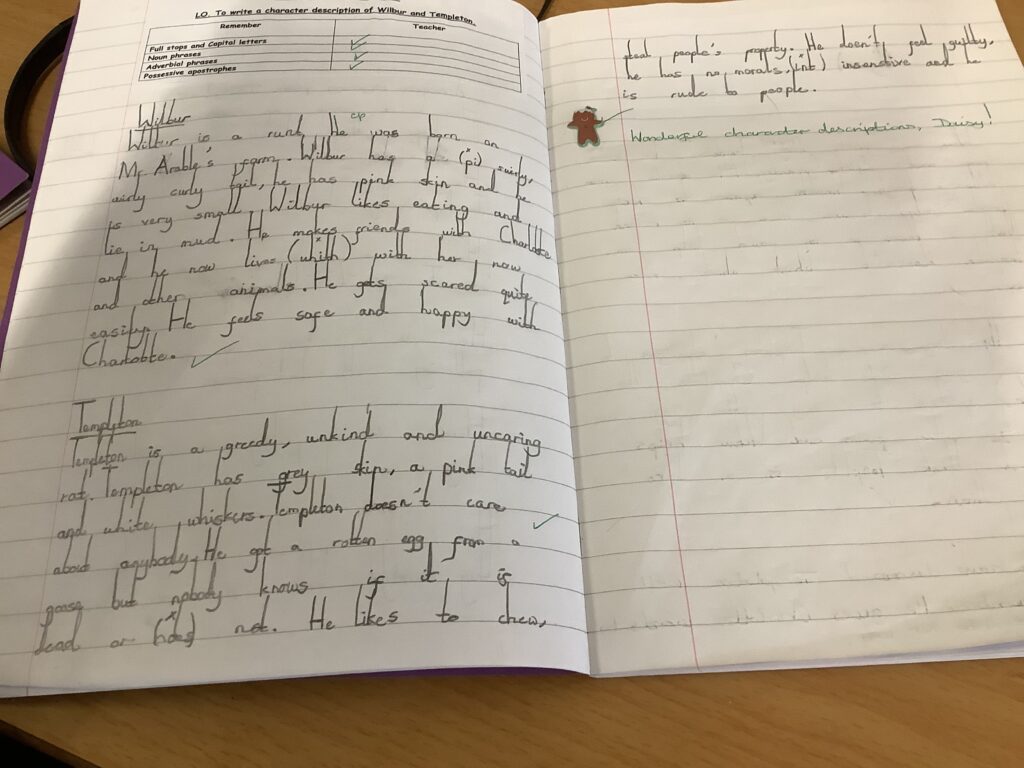 LO. To write a character description of Wilbur and Templeton.
Remember Teacher
Full stops and Capital letters
Noun phrases
Adverbial phrases
Possessive apostrophes
Wilbur
Wilbur is a runt, He was born on
Mr Arable's farm. Wilbur has a (pi) swirly,
wirly curly tail, he has pink skin and he
is very small. Wilbur likes eating and
lie in mud. He makes friends with Charlotte
and he now lives (whith) with her now
and other animals. He gets scared quite
easily. He feels safe and happy with
Charlotte.
Templeton
Templeton is a greedy, unkind and uncaring
rat. Templeton has grey skin, a pink tail
and white whiskers. Templeton doesn't care
about anybody. He got a rotten egg from a
goose but nobody knows if it is
dead or not. He likes to chew,
steal people's property. He doesn't feel guilty,
he has no morals, (int) insensitive and he
is rude to people.
Wonderful character descriptions, Daisy!